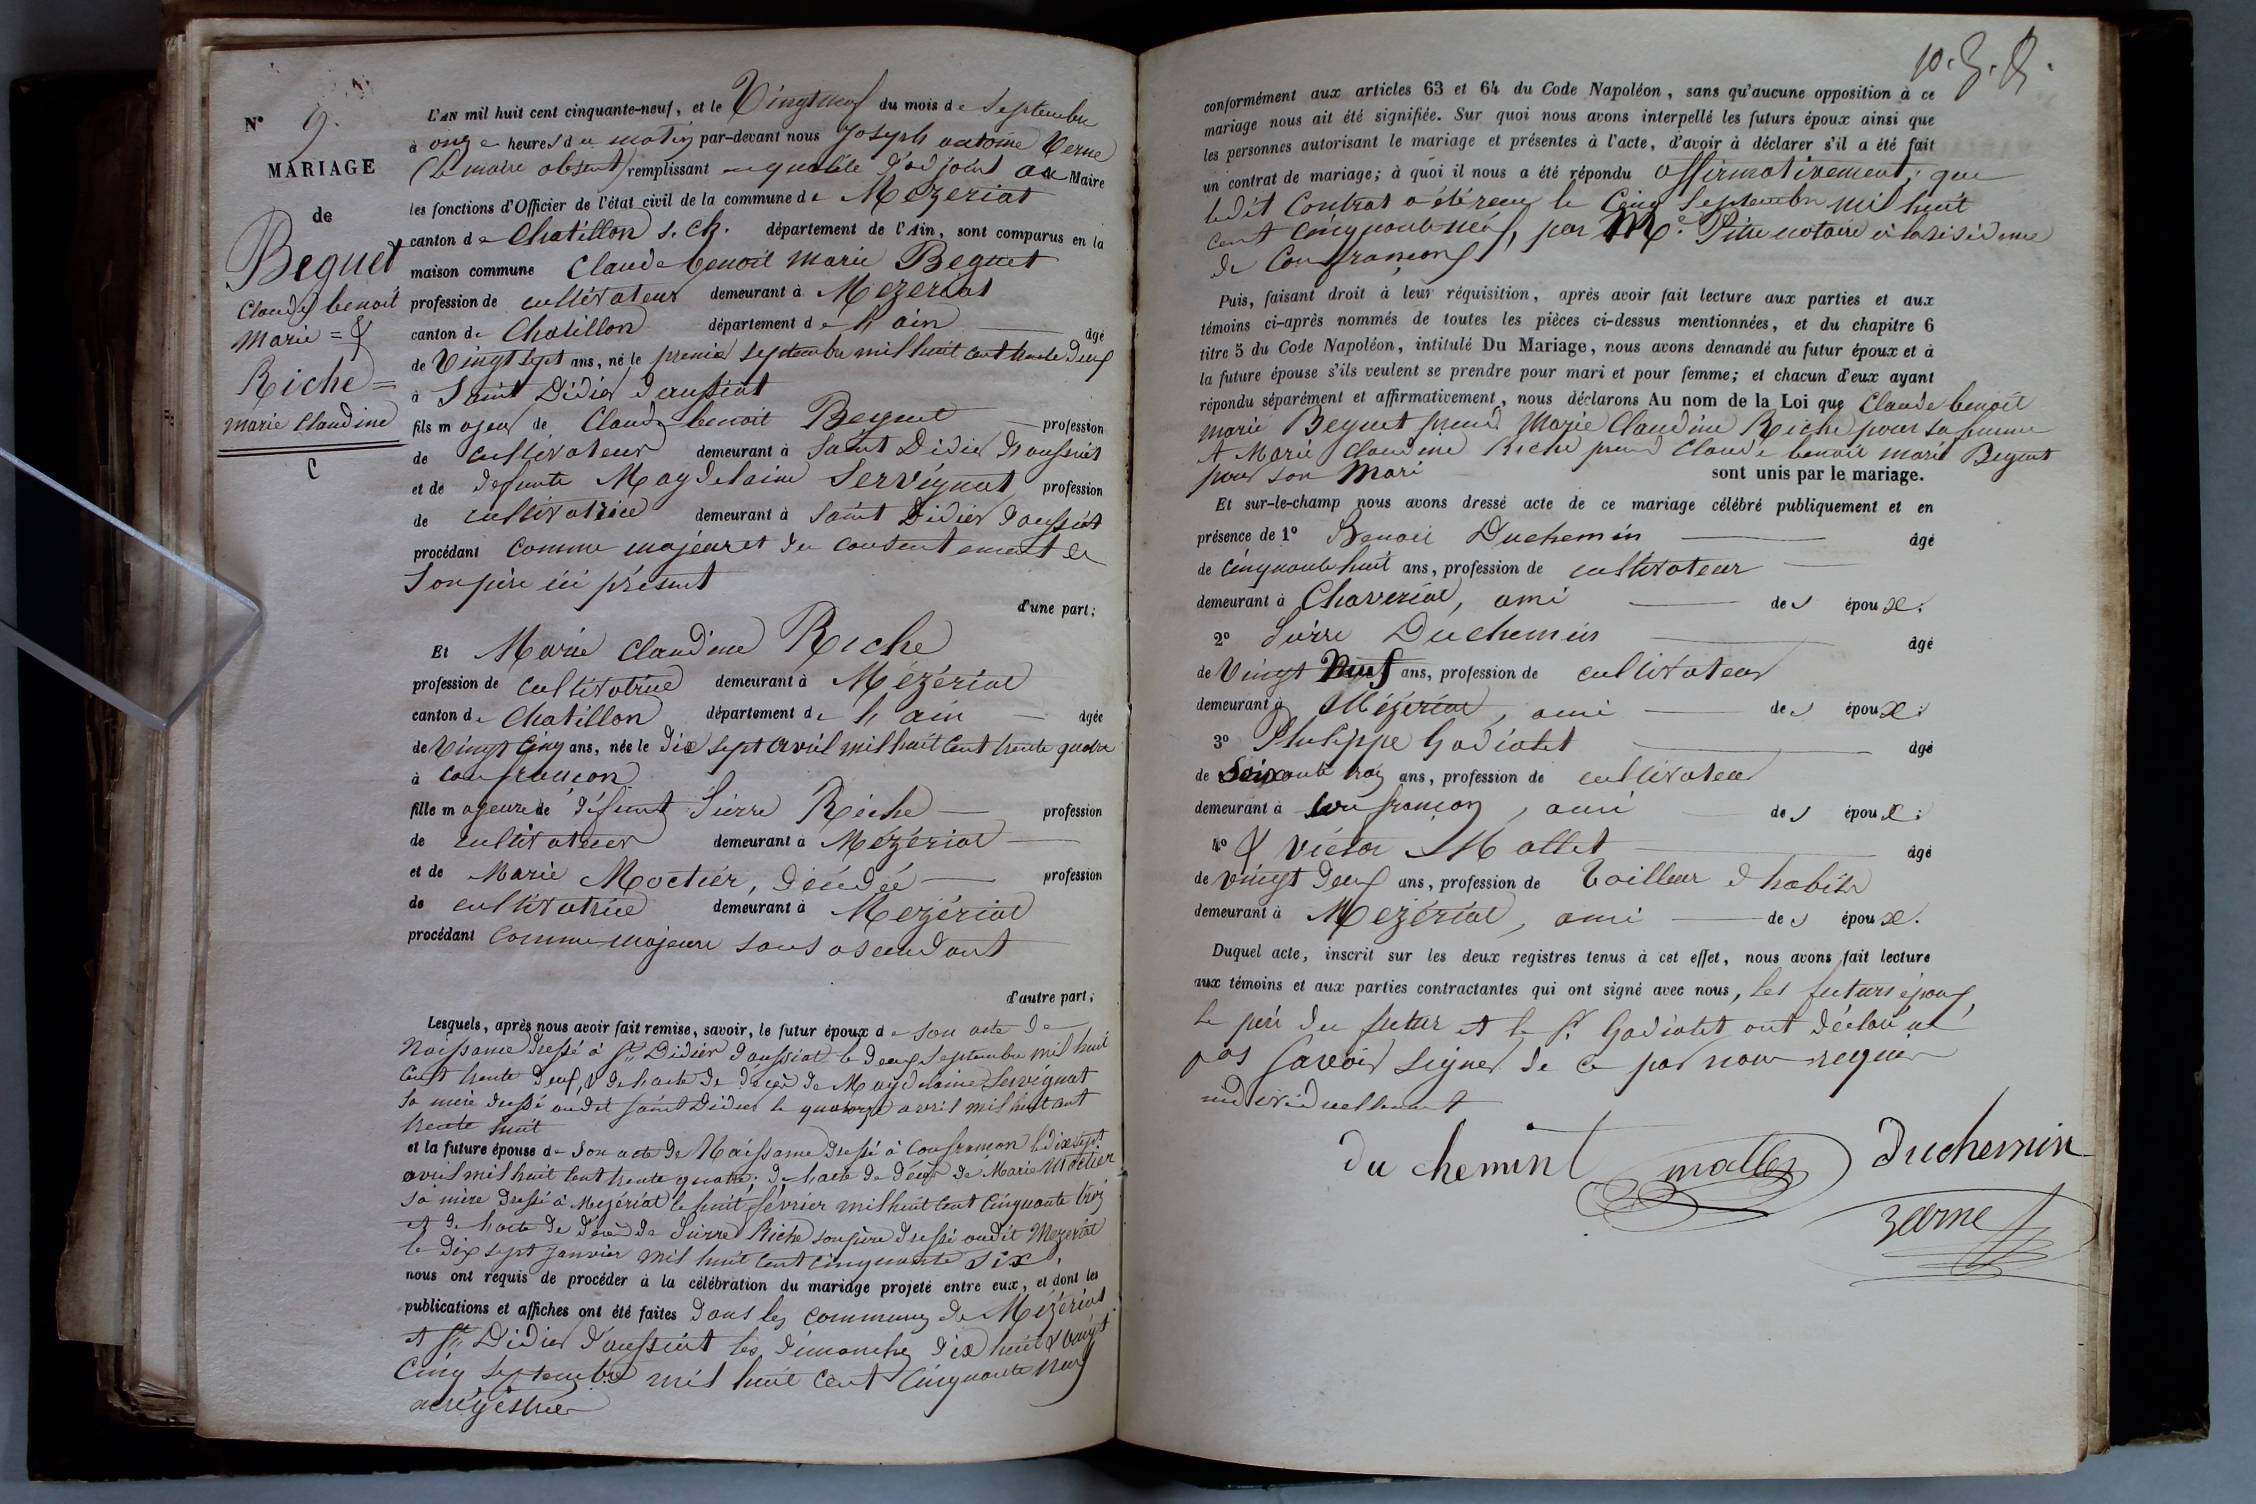 N° 9.
MARIAGE
de
Beguet
Claude benoit
Marie = &
Riche =
marie Claudine
C
L'AN mil huit cent cinquante-neuf, et le Vingt neuf du mois de Septembre
à onze heures du matin par-devant nous Joseph antoine Verne
(le maire absent) remplissant en qualité d'adjoint au Maire
les fonctions d'Officier de l'état civil de la commune de Mézériat
canton de Chatillon s. Ch. département de l'Ain, sont comparus en la
maison commune Claude benoit marie Beguet
profession de cultivateur demeurant à Mézériat
canton de Chatillon département de l'ain — âgé
de Vingt sept ans, né le premier septembre mil huit cent trente deux
à Saint Didier d'aussiat
fils majeur de Claude benoit Beguet — profession
de cultivateur demeurant à Saint Didier d'aussiat
et de defunte Magdelaine Servignat profession
de cultivatrice demeurant à Saint Didier d'aussiat
procédant comme majeur et du consentement de
Son père ici présent
d'une part;
Et Marie Claudine Riche
profession de cultivatrice demeurant à Mézériat
canton de Chatillon département de l'ain — âgée
de Vingt Cinq ans, née le Dix sept avril mil huit Cent trente quatre
à Confrançon
fille majeure de défunt Pierre Riche — profession
de cultivateur demeurant à Mézériat —
et de Marie Moctier, décédée — profession
de cultivatrice demeurant à Mézériat
procédant comme majeure sans ascendant
d'autre part;
Lesquels, après nous avoir fait remise, savoir, le futur époux de son acte de
Naissance dressé à St Didier d'aussiat le deux Septembre mil huit
Cent trente deux, & de l'acte de décès de Magdelaine Servignat
sa mère dressé audit saint Didier le quatorze avril mil huit cent
trente huit
et la future épouse de son acte de Naissance dressé à Confrançon le dix sept
avril mil huit Cent trente quatre; de l'acte de décès de Marie Moctier
sa mère dressé à Mézériat le huit février mil huit Cent Cinquante trois
et de l'acte de décès de Pierre Riche son père dressé audit Mézériat
le Dix sept janvier mil huit Cent cinquante six,
nous ont requis de procéder à la célébration du mariage projeté entre eux, et dont les
publications et affiches ont été faites dans les communes de Mézériat
et St Didier d'aussiat les dimanches dix huit & vingt
Cinq Septembre mil huit Cent Cinquante neuf
conformément aux articles 63 et 64 du Code Napoléon, sans qu'aucune opposition à ce
mariage nous ait été signifiée. Sur quoi nous avons interpellé les futurs époux ainsi que
les personnes autorisant le mariage et présentes à l'acte, d'avoir à déclarer s'il a été fait
un contrat de mariage; à quoi il nous a été répondu affirmativement, que
ledit Contrat a été reçu le Cinq Septembre mil huit
cent Cinquante neuf, par Me. notaire à la résidence
de Confrançon
Puis, faisant droit à leur réquisition, après avoir fait lecture aux parties et aux
témoins ci-après nommés de toutes les pièces ci-dessus mentionnées, et du chapitre 6
titre 5 du Code Napoléon, intitulé Du Mariage, nous avons demandé au futur époux et à
la future épouse s'ils veulent se prendre pour mari et pour femme; et chacun d'eux ayant
répondu séparément et affirmativement, nous déclarons Au nom de la Loi que Claude benoit
marie Beguet prend Marie Claudine Riche pour sa femme
& Marie Claudine Riche prend Claude benoit marie Beguet
pour son Mari sont unis par le mariage.
Et sur-le-champ nous avons dressé acte de ce mariage célébré publiquement et en
présence de 1° Benoit Duchemin — âgé
de Cinquante huit ans, profession de cultivateur —
demeurant à Chaveriat, ami — des époux.
2° Pierre Duchemin — âgé
de Vingt Neuf ans, profession de cultivateur
demeurant à Mézériat, ami — des époux:
3° Philippe Godiatet — âgé
de Soixante trois ans, profession de cultivateur
demeurant à Confrançon, ami des époux:
4° & Victor Mallet — âgé
de vingt deux ans, profession de Tailleur d'habits
demeurant à Mézériat, ami — des époux.
Duquel acte, inscrit sur les deux registres tenus à cet effet, nous avons fait lecture
aux témoins et aux parties contractantes qui ont signé avec nous, les futurs époux,
le père du futur et le Sr Godiatet ont déclaré ne
pas savoir signer de ce par nous requis
individuellement
du chemint mallet Duchemin
verne